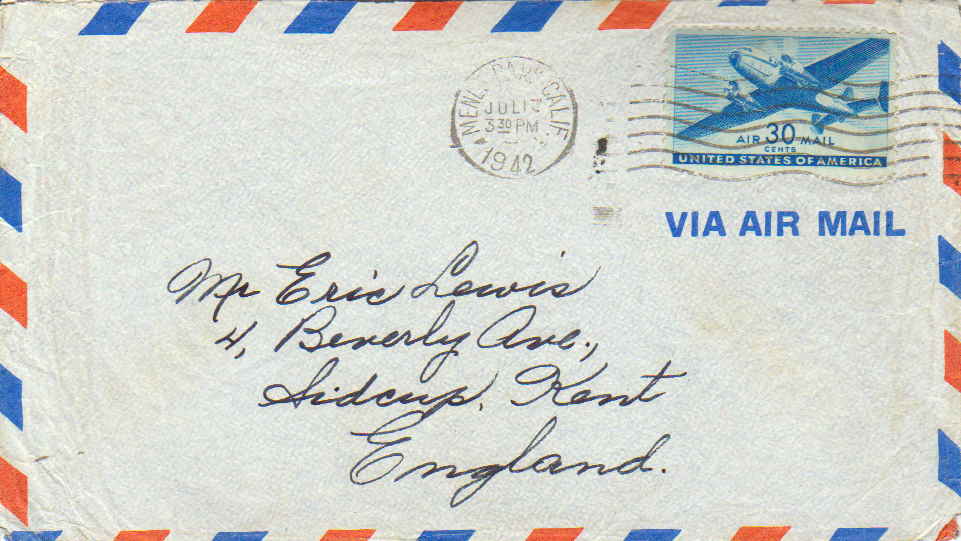 MENLO PARK CALIF.
JUL 13
3 30 PM
1942
AIR 30 MAIL
CENTS
UNITED STATES OF AMERICA
VIA AIR MAIL
Mr Eric Lewis
4, Beverly Ave.,
Sidcup, Kent
England.